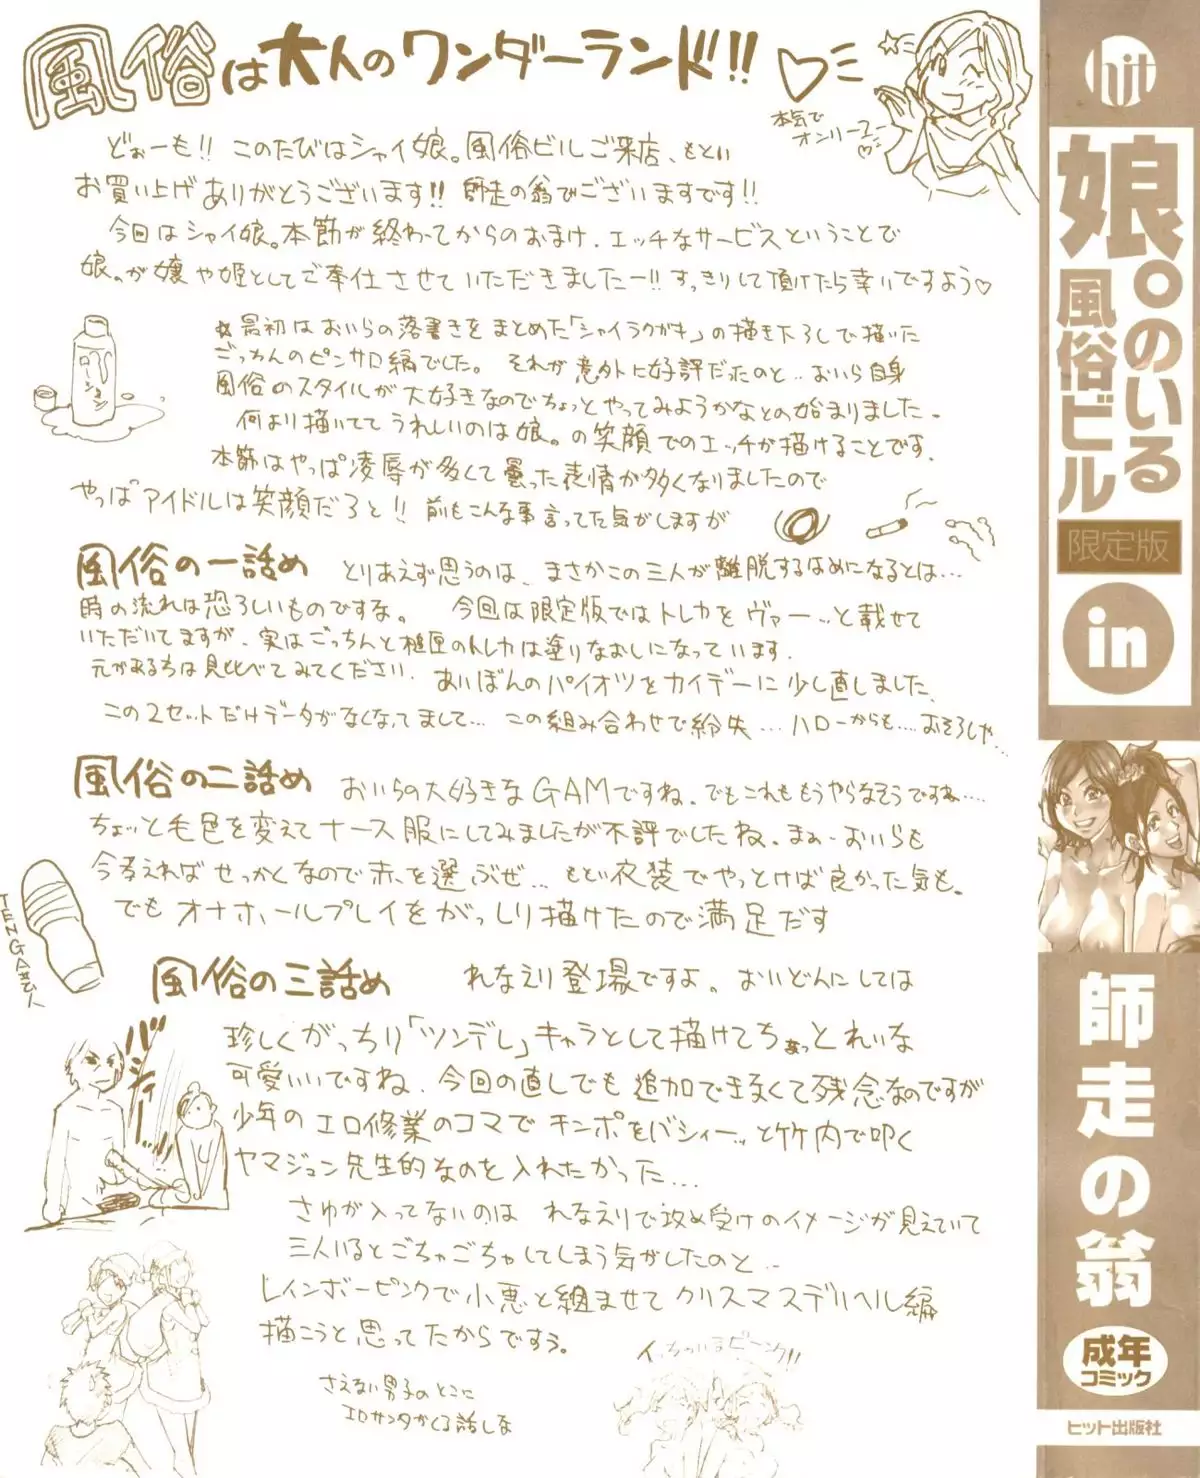 風俗は大人のワンダーランド!!
本気で
オンリーユー
どぉーも!! このたびはシャイ娘。風俗ビルご来店、もとい
お買い上げありがとうございます!! 師走の翁でございますです!!
今回はシャイ娘。本節が終わってからのおまけ、エッチなサービスということで
娘。が嬢や姫としてご奉仕させていただきましたー!! すっきりして頂けたら幸いですよう♡
ローション
☆最初はおいらの落書きをまとめた「シャイラクガキ」の描き下ろしで描いた
ごっちんのピンサロ編でした。それが意外に好評だったのと‥おいら自身
風俗のスタイルが大好きなのでちょっとやってみようかなとの始まりました。
何より描いててうれしいのは娘。の笑顔でのエッチが描けることです。
本節はやっぱ凌辱が多くて曇った表情が多くなりましたので
やっぱアイドルは笑顔だろと!! 前もこんな事言ってた気がしますが
風俗の一話め とりあえず思うのは、まさかこの三人が離脱するはめになるとは…
時の流れは恐ろしいものですな。 今回は限定版ではトレカをヴァーッと載せて
いただいてますが、実はごっちんと槌匣のトレカは塗りなおしになっています。
元がある方は見比べてみてください。あいぼんのパイオツをカイデーに少し直しました。
この2セットだけデータがなくなってまして… この組み合わせで紛失…ハローからも…おそろしや…
風俗の二話め おいらの大好きなGAMですね。でもこれももうやらなそうですね…
ちょっと毛色を変えてナース服にしてみましたが不評でしたね。まぁおいらも
今考えればせっかくなので赤を選ぶぜ… もとい衣装でやっとけば良かった気も。
でもオナホールプレイをがっしり描けたので満足だす
TENGA芸人
風俗の三話め れなえり登場ですよ。おいどんにしては
珍しくがっちり「ツンデレ」キャラとして描けてちょっとれいな
可愛いいですね。今回の直しでも追加できなくて残念なのですが
少年のエロ修業のコマでチンポをバシィーッと竹内で叩く
ヤマジュン先生的なのを入れたかった…
バシィーッ
さゆが入ってないのは れなえりで攻め受けのイメージが見えていて
三人いるとごちゃごちゃしてしまう気がしたのと‥
レインボーピンクで小悪と組ませてクリスマスデリヘル編
描こうと思ってたからですぅ。
さえない男子のとこに
エロサンタがくる話しな
hit
娘。のいる
風俗ビル
限定版
in
師走の翁
成年
コミック
ヒット出版社